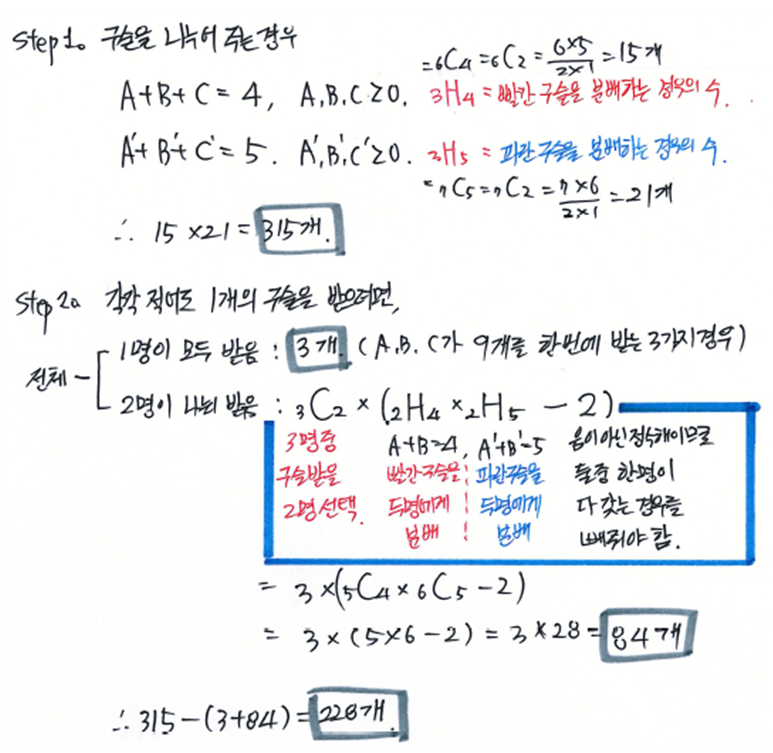 Step 1. 구슬을 나누어 주는 경우
A+B+C=4, A,B,C≥0. ₃H₄=빨간 구슬을 분배하는 경우의 수.
=₆C₄=₆C₂=6×5/2×1=15개
A'+B'+C'=5. A',B',C'≥0. ₃H₅=파란 구슬을 분배하는 경우의 수.
=₇C₅=₇C₂=7×6/2×1=21개
∴ 15×21=315개.
Step 2. 각각 적어도 1개의 구슬을 받으려면,
전체
1명이 모두 받음 : 3개. (A,B,C가 9개를 한번에 받는 3가지 경우)
2명이 나눠 받음 : ₃C₂×(₂H₄×₂H₅-2)
3명중 구슬받을 2명 선택.
A+B=4, 빨간구슬을 두명에게 분배
A'+B'=5 파란구슬을 두명에게 분배
음이 아닌 정수해이므로 둘중 한명이 다 갖는 경우를 빼줘야 함.
= 3×(₅C₄×₆C₅-2)
= 3×(5×6-2)=3×28=84개
∴ 315-(3+84)=228개.